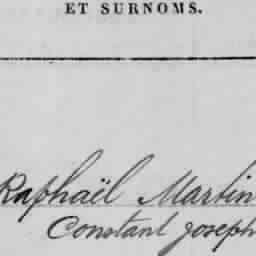 ET SURNOMS.
Raphaël Martin
Constant joseph